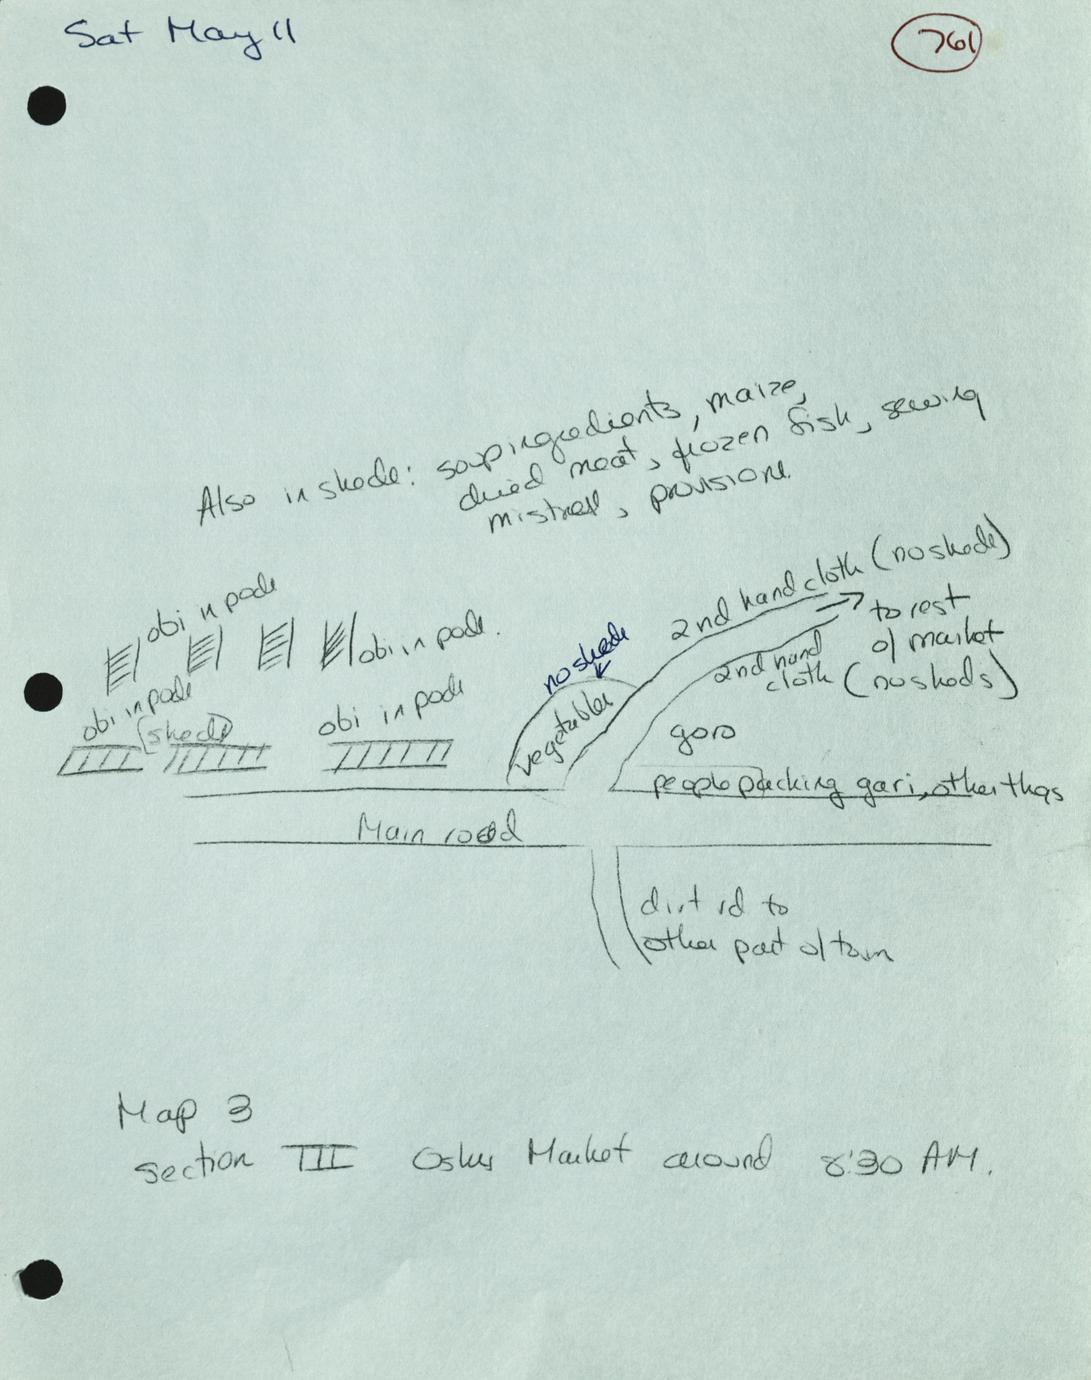 Sat May 11
761
Also in sheds: soup ingredients, maize,
dried meat, frozen fish, sewing
mistress, provisions.
obi in pods
obi in pods.
obi in pods
(sheds)
obi in pods
no sheds
vegetables
2nd hand cloth (no sheds)
to rest
o/ market
2nd hand
cloth (no sheds)
goro
people packing gari, other thgs
Main road
dirt rd to
other part o/ town
Map 3
section III Market around 8:30 AM.